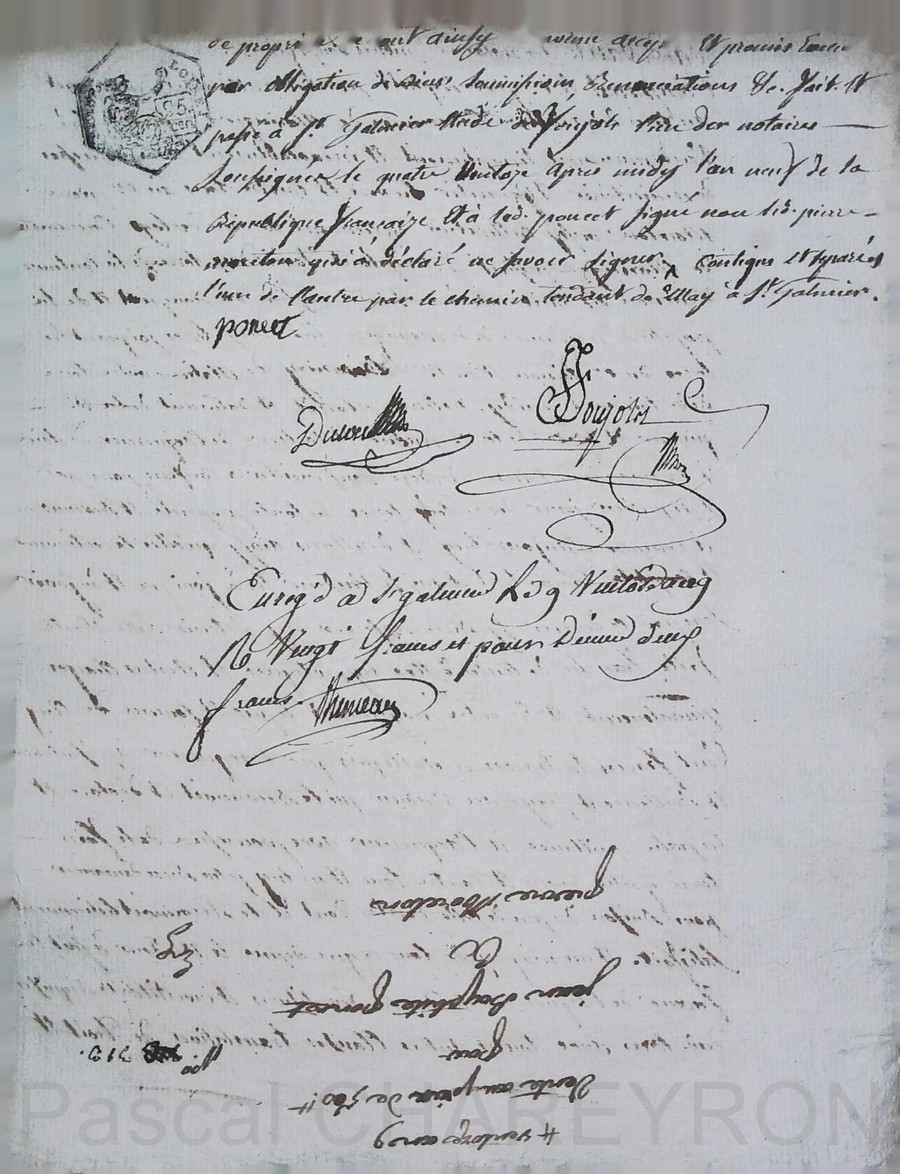 de propri
par obligation de biens soumissions Renonciations &c. fait et
passé à St Galmier Etude de Poujols l'un des notaires
soussignés le quatre Ventoze après midy l'an neuf de la
République francaize Et à led. poncet signé non led. pierre
moreton qui à déclaré ne savoir signer. contigus et separés
l'une de l'autre par le chemin tendant de à St Galmier.
poncet
Poujols
Enreg'd a st galmier Le 9 an 9
R Vingt francs et pour deux
francs
pierre Moreton
a
jean Baptiste poncet
pour
vente au prix de 500 tt
4 ventoze an 9
No 313.
Pascal CHAREYRON